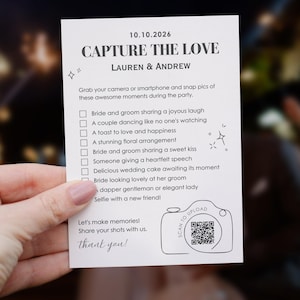 10.10.2026
CAPTURE THE LOVE
LAUREN & ANDREW
Grab your camera or smartphone and snap pics of
these awesome moments during the party.
Bride and groom sharing a joyous laugh
A couple dancing like no one's watching
A toast to love and happiness
A stunning floral arrangement
Bride and groom sharing a sweet kiss
Someone giving a heartfelt speech
Delicious wedding cake awaiting its moment
Bride looking lovely at her groom
dapper gentleman or elegant lady
Selfie with a new friend!
Let's make memories!
Share your shots with us.
thank you!
SCAN TO UPLOAD